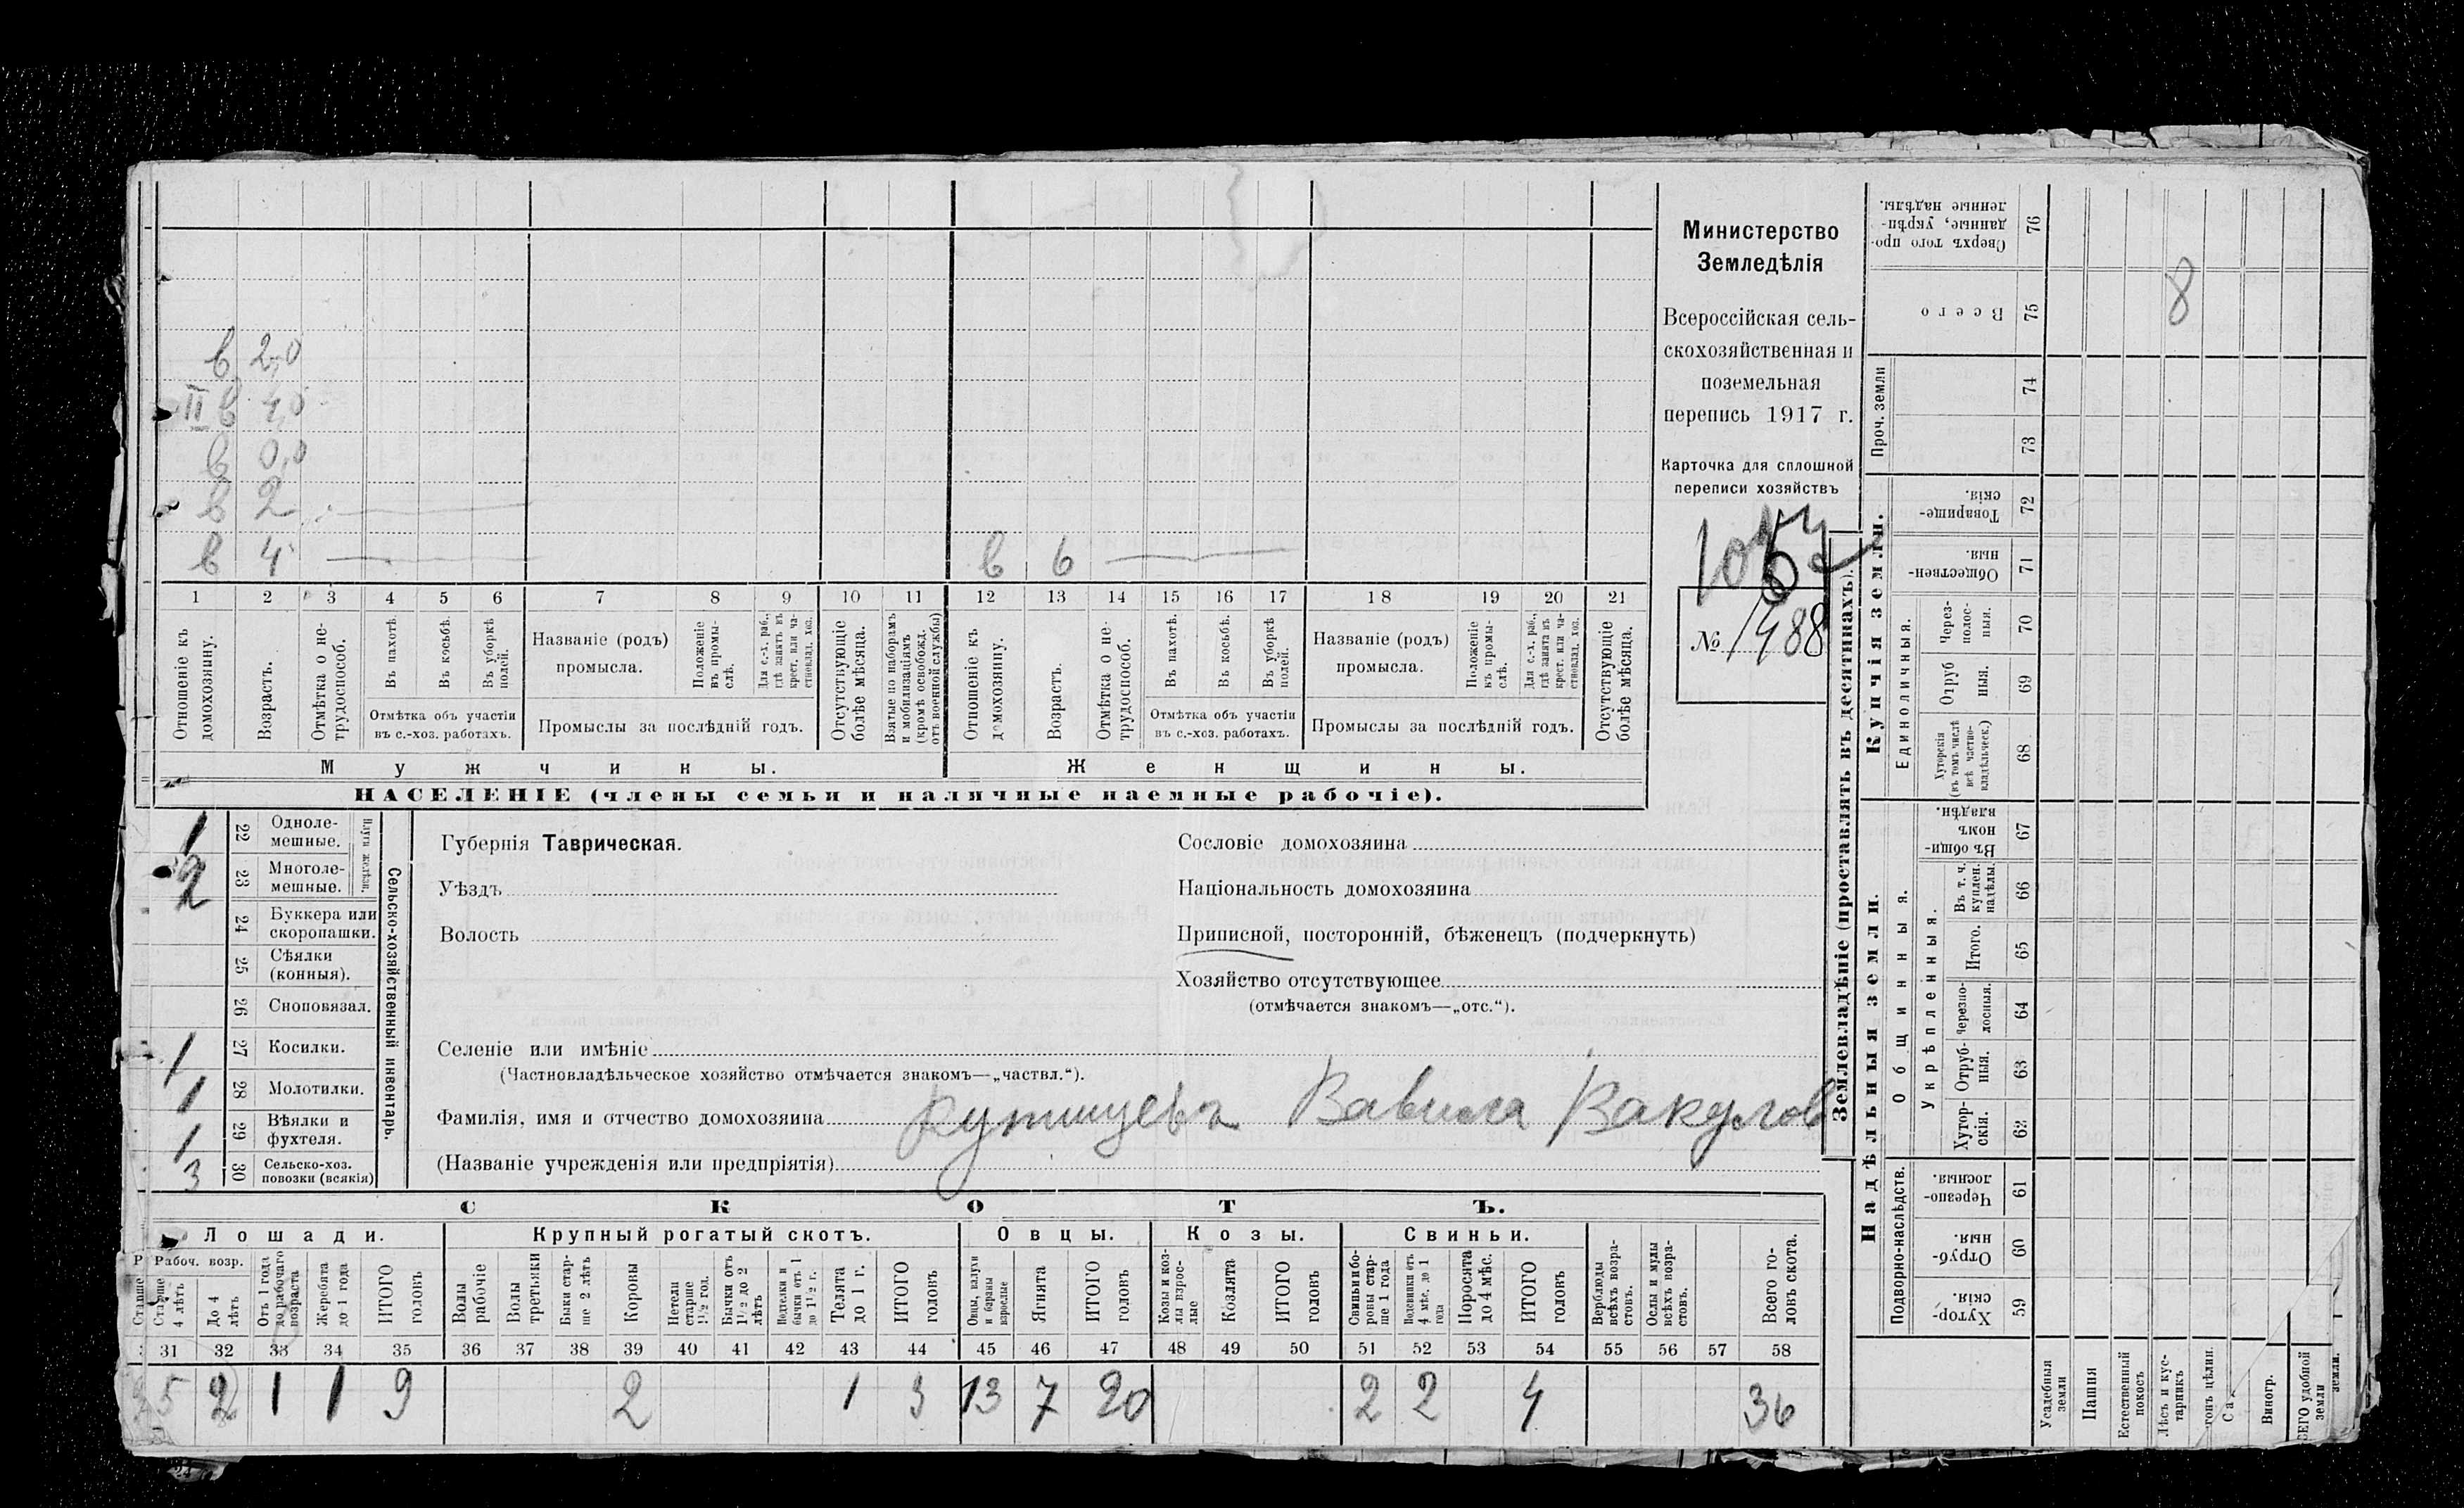 Министерство
Земледѣлія
Всероссійская сель-
скохозяйственная и
поземельная
перепись 1917 г.
Карточка для сплошной
переписи хозяйствъ
№ 1488
в 2,0
II в 4,0
в 0,0
в 2
в 4
в 6
1 2 3 4 5 6 7 8 9 10 11 12 13 14 15 16 17 18 19 20 21
Отношеніе къ домохозяину.
Возрастъ.
Отмѣтка о не-трудоспособ.
Въ пахотѣ.
Въ косьбѣ.
Въ уборкѣ полей.
Отмѣтка объ участіи
въ с.-хоз. работахъ.
Названіе (родъ)
промысла.
Положеніе въ промы-слѣ.
Для с.-х. раб., гдѣ занятъ въ крест. или ча-стновлад. хоз.
Промыслы за послѣдній годъ.
Отсутствующіе болѣе мѣсяца.
Взятые по наборамъ и мобилизаціямъ (кромѣ освобожд. отъ военной службы)
Отношеніе къ домохозяину.
Возрастъ.
Отмѣтка о не-трудоспособ.
Въ пахотѣ.
Въ косьбѣ.
Въ уборкѣ полей.
Отмѣтка объ участіи
въ с.-хоз. работахъ.
Названіе (родъ)
промысла.
Положеніе къ промы-слѣ.
Для с.-х. раб., гдѣ занята въ крест. или ча-стновлад. хоз.
Промыслы за послѣдній годъ.
Отсутствующіе болѣе мѣсяца.
Мужчины.
Женщины.
НАСЕЛЕНІЕ (члены семьи и наличные наемные рабочіе).
Сельско-хозяйственный инвентарь.
Плуги желѣзн.
1 22 Одноле-мешные.
2 23 Многоле-мешные.
24 Буккера или скоропашки.
25 Сѣялки (конныя).
26 Сноповязал.
1 27 Косилки.
1 28 Молотилки.
1 29 Вѣялки и фухтеля.
3 30 Сельско-хоз. повозки (всякія)
Губернія Таврическая.
Уѣздъ
Волость
Сословіе домохозяина
Національность домохозяина
Приписной, посторонній, бѣженецъ (подчеркнуть)
Хозяйство отсутствующее
(отмѣчается знакомъ—„отс.“).
Селеніе или имѣніе
(Частновладѣльческое хозяйство отмѣчается знакомъ—„частвл.“).
Фамилія, имя и отчество домохозяина Вавила Вакулов
(Названіе учрежденія или предпріятія)
СКОТЪ.
Лошади.
Крупный рогатый скотъ.
Овцы.
Козы.
Свиньи.
Рабоч. возр.
Старше 4 лѣтъ
До 4 лѣтъ
Отъ 1 года до рабочаго возраста
Жеребята до 1 года
ИТОГО головъ
Волы рабочіе
Волы третьяки
Быки стар-ше 2 лѣтъ
Коровы
Нетели старше 1½ год.
Бычки отъ 1½ до 2 лѣтъ
Подтелки и бычки отъ 1 до 1½ г.
Телята до 1 г.
ИТОГО головъ
Овцы, валухи и бараны взрослые
Ягнята
ИТОГО головъ
Козы и коз-лы взрос-лые
Козлята
ИТОГО головъ
Свиньи и бо-ровы стар-ше 1 года
Подсвинки отъ 4 мѣс. до 1 года
Поросята до 4 мѣс.
ИТОГО головъ
Верблюды всѣхъ возра-стовъ.
Ослы и мулы всѣхъ возра-стовъ.
Всего го-ловъ скота.
31 32 33 34 35 36 37 38 39 40 41 42 43 44 45 46 47 48 49 50 51 52 53 54 55 56 57 58
5 2 1 1 9 2 1 3 13 7 20 2 2 4 36
Землевладѣніе (проставлять въ десятинахъ).
Надѣльныя земли.
Купчія земли.
Проч. земли
Подворно-наслѣдств.
Общинныя.
Укрѣпленныя.
Единоличныя.
Сверхъ того про-данные, укрѣп-ленные надѣлы. 76
Всего 75 8
74
73
Товарище-скія. 72
Обществен-ныя. 71
Через-полос-ныя. 70
Отруб ныя. 69
Хуторскія (въ томъ числѣ всѣ частно-владѣльческ.) 68
Въ общи-номъ владѣн. 67
Въ т. ч. куплен. надѣлы 66
Итого. 65
Черезпо-лосныя. 64
Отруб-ныя. 63
Хутор-скія. 62
Черезпо-лосныя. 61
Отруб-ныя. 60
Хутор-скія. 59
Усадебныя земли
Пашня
Естественный покосъ
Лѣсъ и кус-тарникъ
Виногр.